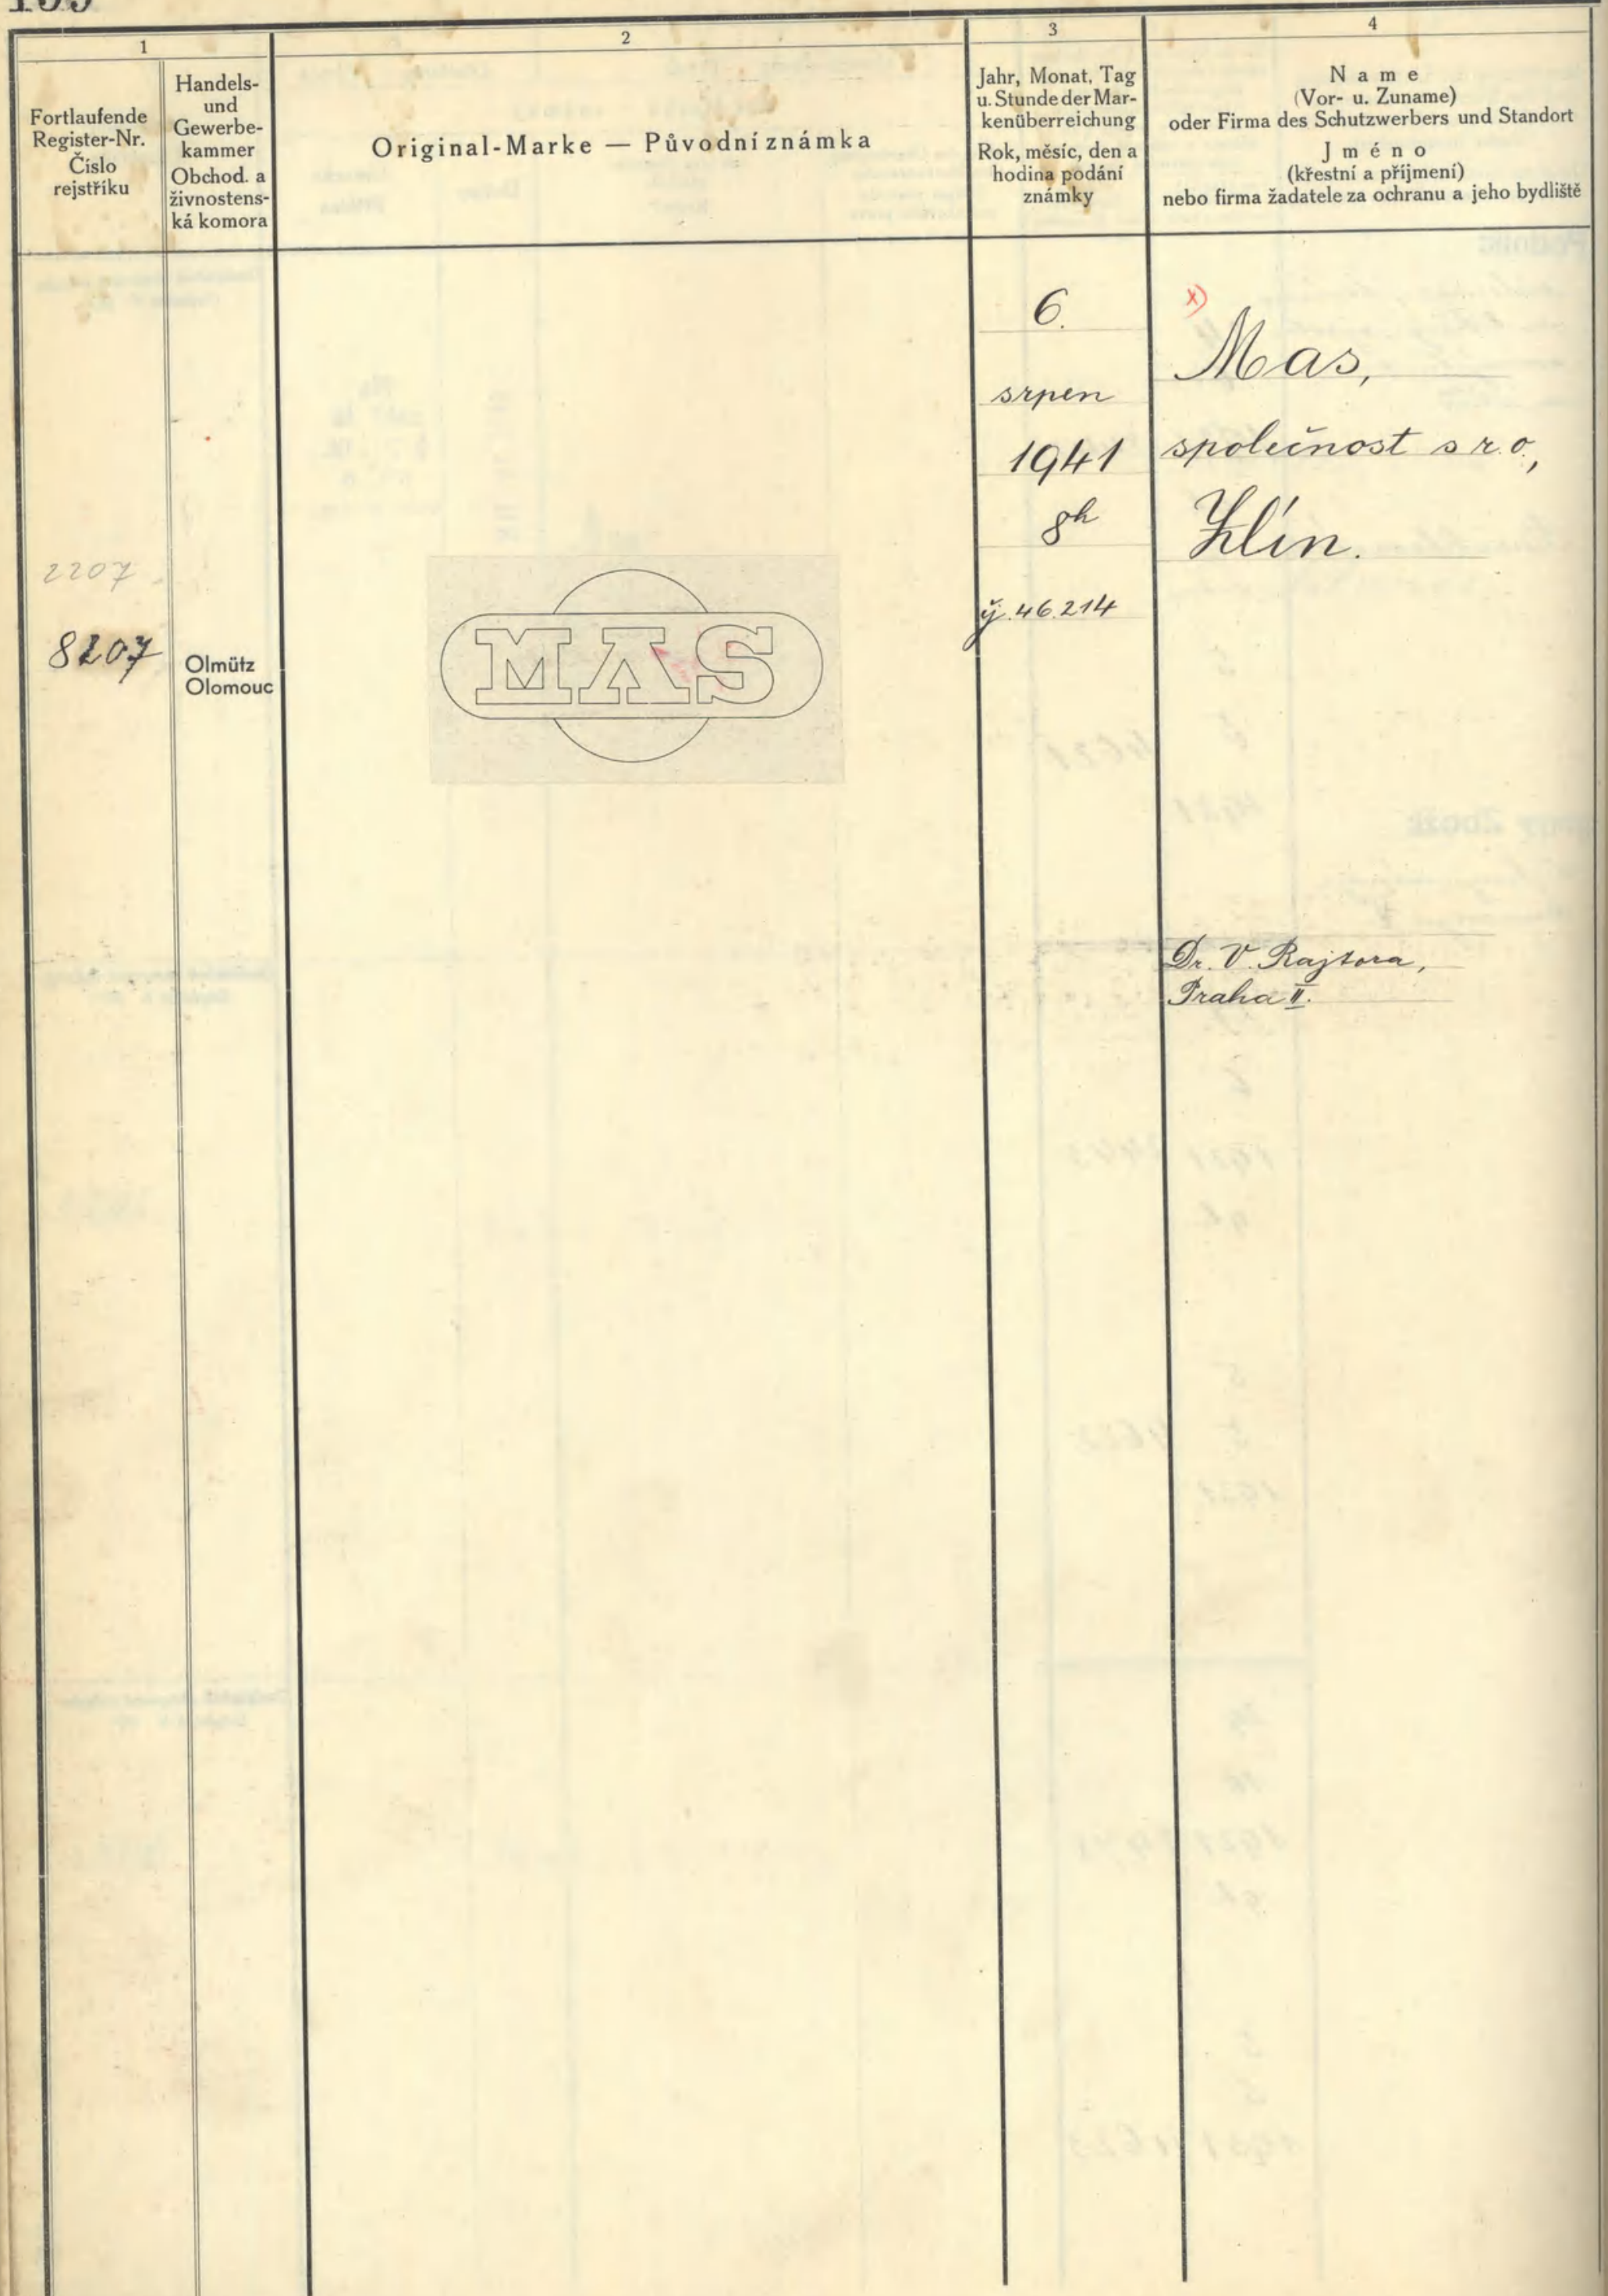 1
2
3
4
Fortlaufende
Register-Nr.
Číslo
rejstříku
Handels-
und
Gewerbe-
kammer
Obchod. a
živnostens-
ká komora
Original-Marke — Původní známka
Jahr, Monat, Tag
u. Stunde der Mar-
kenüberreichung
Rok, měsíc, den a
hodina podání
známky
Name
(Vor- u. Zuname)
oder Firma des Schutzwerbers und Standort
Jméno
(křestní a příjmení)
nebo firma žadatele za ochranu a jeho bydliště
2207
8207
Olmütz
Olomouc
MAS
6.
srpen
1941
8h
46.214
x)
Mas,
společnost s r.o.,
Zlín.
Dr. V. Rajtora,
Praha II.